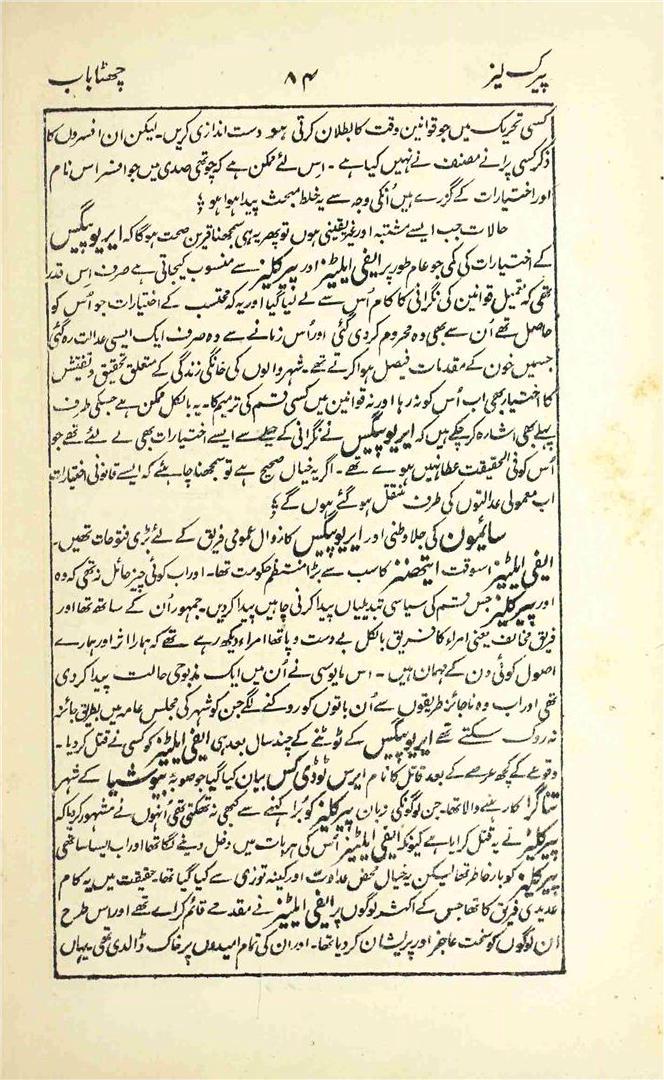 پیرکلیز ۸۴ چھٹا باب
کسی تحریک میں جو قوانین وقت کا بطلان کرتی ہو دست اندازی کریں۔ لیکن ان افسروں کا
ذکر کسی پرانے مصنف نے نہیں کیا ہے۔ اس لئے ممکن ہے کہ چوتھی صدی میں جو افسر اس نام
اور اختیارات کے گزرے ہیں اُنکی وجہ سے یہ خلط مبحث پیدا ہوا ہو ؛
حالات جب ایسے مشتبہ اور غیر یقینی ہوں تو پھر یہی سمجھنا قرین صحت ہوگا کہ ایریوپیگس
کے اختیارات کی کمی جو عام طور پر ایفی ایلٹیز اور پیرکلیز سے منسوب کیجاتی ہے صرف اِس قدر
تھی کہ تعمیل قوانین کی نگرانی کا کام اُس سے لے لیا گیا اور یہ کہ محتسب کے اختیارات جو اُس کو
حاصل تھے اُن سے بھی وہ محروم کردی گئی اور اُس زمانے سے وہ صرف ایک ایسی عدالت رہ گئی
جسمیں خون کے مقدمات فیصل ہوا کرتے تھے۔ شہر والوں کی خانگی زندگی کے متعلق تحقیق و تفتیش
کا اختیار بھی اب اُس کو نہ رہا اور نہ قوانین میں کسی قسم کی ترمیم کا۔ یہ بالکل ممکن ہے جسکی طرف
پہلے بھی اشارہ کرچکے ہیں کہ ایریوپیگس نے نگرانی کے حیلے سے ایسے اختیارات بھی لے لئے تھے جو
اُس کو فی الحقیقت عطا نہیں ہوے تھے۔ اگر یہ خیال صحیح ہے تو سمجھنا چاہئے کہ ایسے قانونی اختیارات
اب معمولی عدالتوں کی طرف منتقل ہو گئے ہوں گے ؛
سائیمون کی جلاوطنی اور ایریوپیگس کا زوال عمومی فریق کے لئے بڑی فتوحات تھیں۔
ایفی ایلٹیز اسوقت ایتھنز کا سب سے بڑا منتظم حکومت تھا۔ اور اب کوئی چیز حائل نہ تھی کہ وہ
اور پیرکلیز جس قسم کی سیاسی تبدیلیاں پیدا کرنی چاہیں پیدا کردیں۔ جمہور اُن کے ساتھ تھا اور
فریق مخالف یعنی امراء کا فریق بالکل بے دست و پا تھا امراء دیکھ رہے تھے کہ ہمارا اثر اور ہمارے
اصول کوئی دن کے مہمان ہیں۔ اس مایوسی نے اُن میں ایک مذبوحی حالت پیدا کردی
تھی اور اب وہ ناجائز طریقوں سے اُن باتوں کو روکنے لگے جن کو شہر کی مجلس عامہ میں بطریق جائز
نہ روک سکتے تھے ایریوپیگس کے ٹوٹنے کے چند سال بعد ہی ایفی ایلٹیز کو کسی نے قتل کردیا۔
وقوعے کے کچھ عرصے کے بعد قاتل کا نام ایرس ٹوڈی کس بیان کیا گیا جو صوبۂ بیوشیا کے شہر
تناگرا کا رہنے والا تھا۔ جن لوگونکی زبان پیرکلیز کو بُرا کہنے سے کبھی نہ تھکتی تھی اُنہوں نے مشہور کردیا کہ
پیرکلیز نے یہ قتل کرایا ہے کیونکہ ایفی ایلٹیز اُس کی ہر بات میں دخل دینے لگا تھا اور اب ایسا ساتھی
پیرکلیز کو بار خاطر تھا لیکن یہ خیال محض عداوت اور کینہ توزی سے کیا گیا تھا۔ حقیقت میں یہ کام
عدیدی فریق کا تھا جس کے اکثر لوگوں پر ایفی ایلٹیز نے مقدمے قائم کراے تھے اور اس طرح
اُن لوگوں کو سخت عاجز اور پریشان کردیا تھا۔ اور ان کی تمام امیدوں پر خاک ڈالدی تھی۔ یہاں